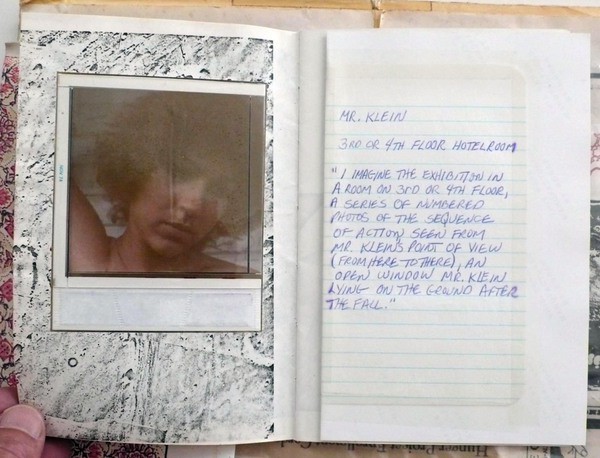 MR. KLEIN
3RD OR 4TH FLOOR HOTELROOM
"I IMAGINE THE EXHIBITION IN
A ROOM ON 3RD OR 4TH FLOOR,
A SERIES OF NUMBERED
PHOTOS OF THE SEQUENCE
OF ACTION SEEN FROM
MR. KLEIN'S POINT OF VIEW
(FROM HERE TO THERE), AN
OPEN WINDOW MR. KLEIN
LYING ON THE GROUND AFTER
THE FALL."